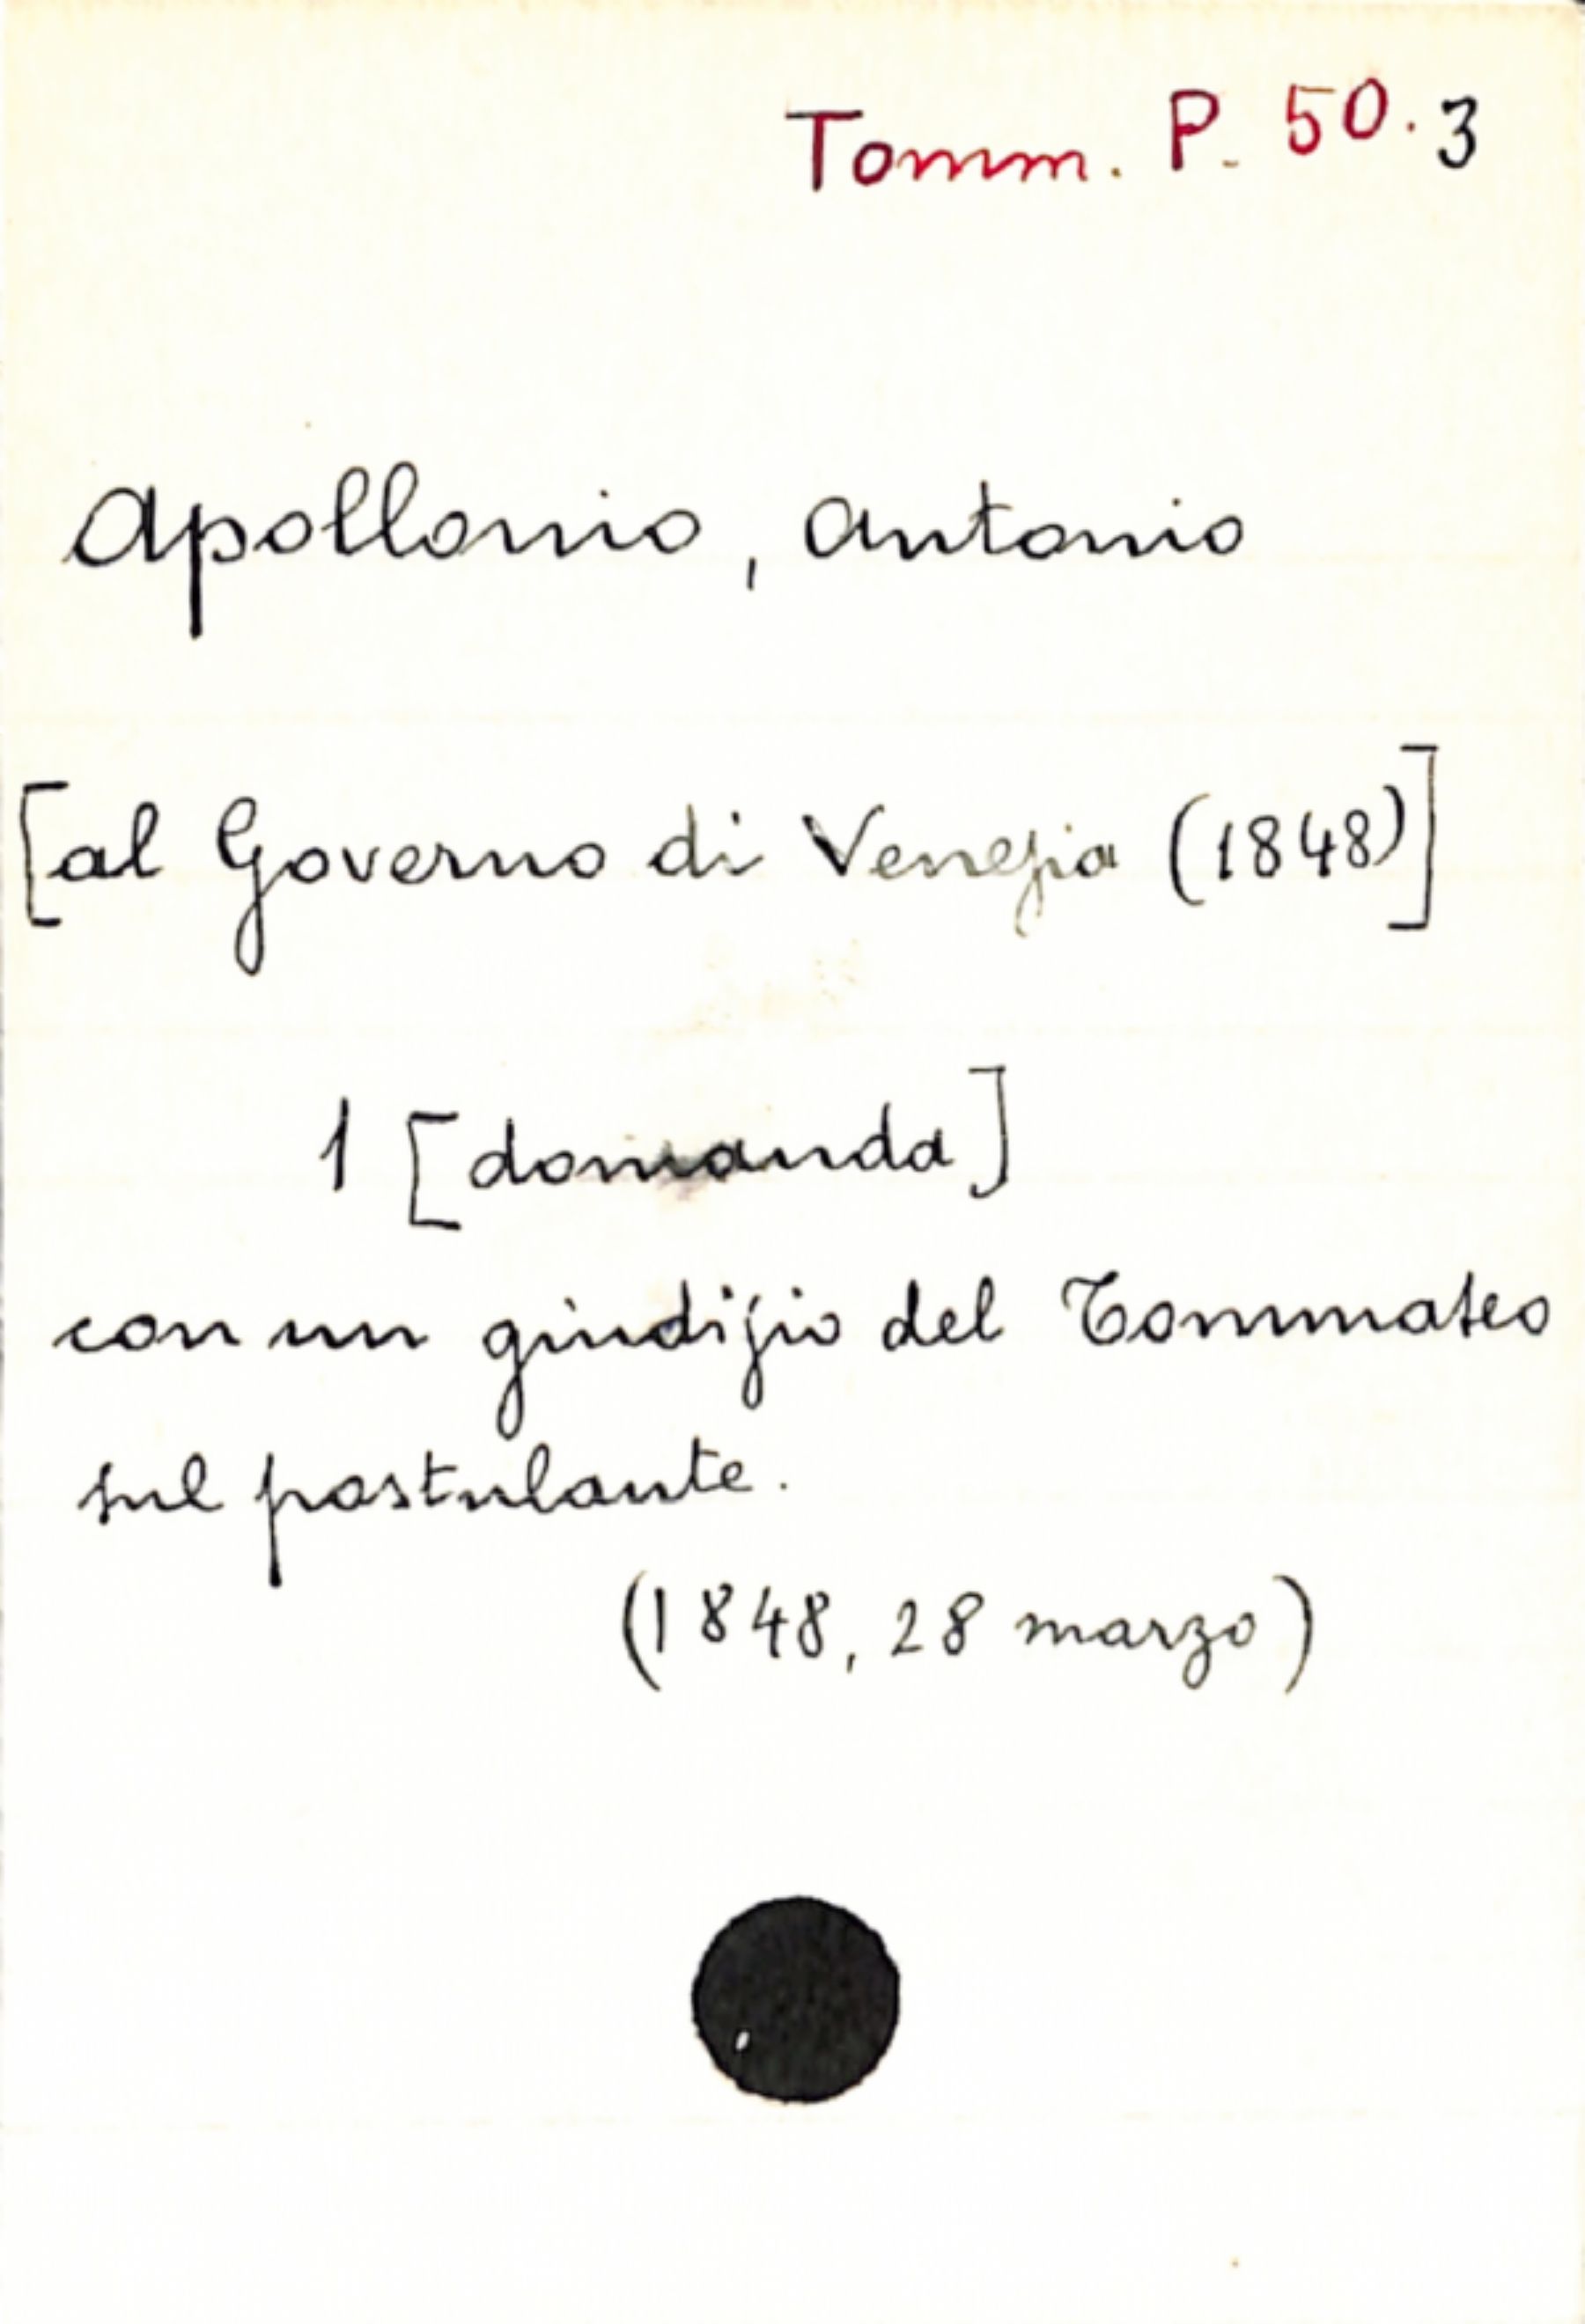 Tomm. P. 50.3
Apollonio, Antonio
[al Governo di Venezia (1848)]
1 [domanda]
con un giudizio del Tommaseo
sul postulante.
(1848, 28 marzo)